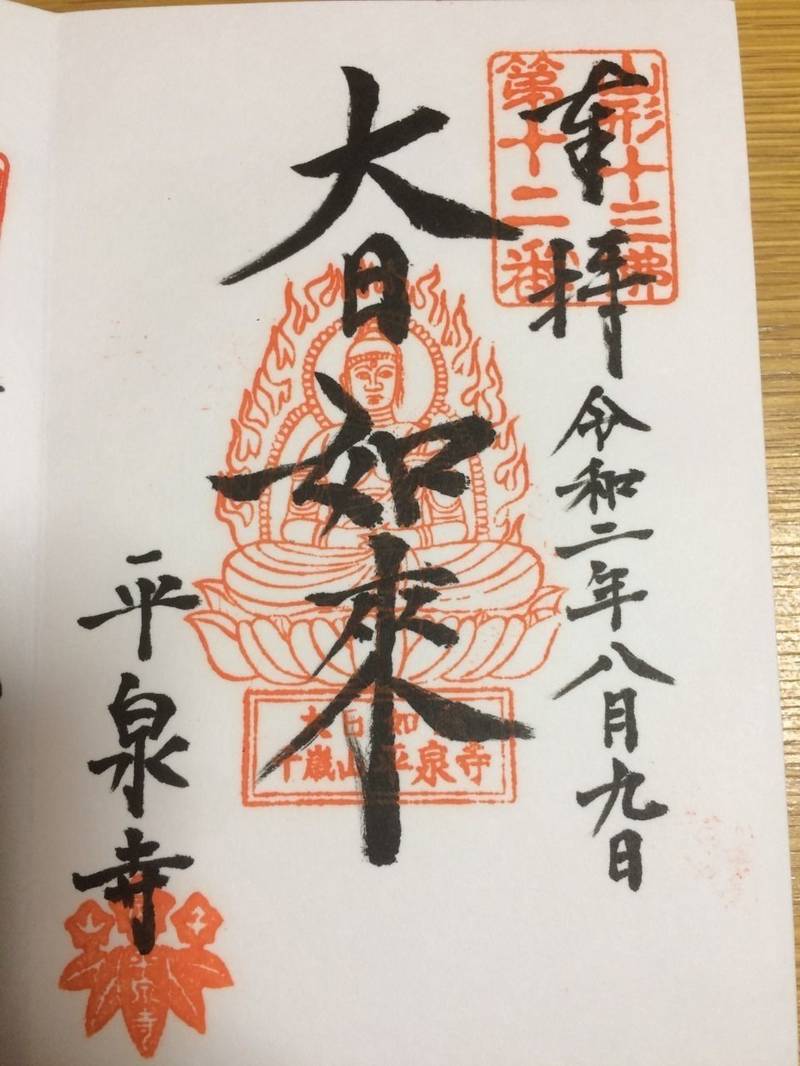 山形十三佛
第十二番
奉拝
令和二年八月九日
大日如来
大日如来
千歳山平泉寺
平泉寺
平泉寺